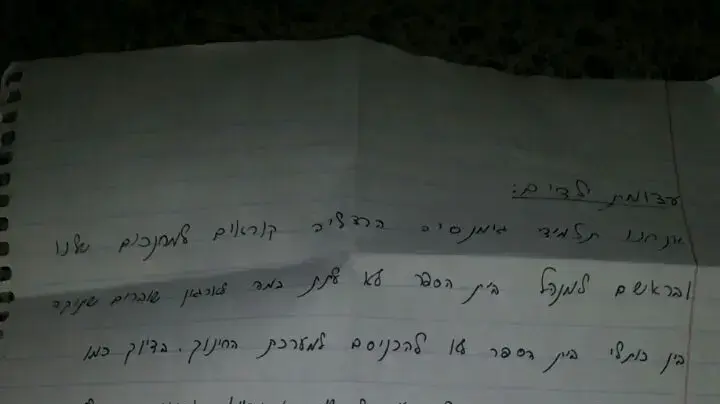 עצומת ילדים:
אנחנו תלמידי גימנסיה הרצליה קוראים למחנכים שלנו
ובראשם למנהל בית הספר לא לתת במה לארגון שוברים שתיקה
בין כותלי בית הספר ולא להכניסם למערכת החינוך. בדיוק כמו